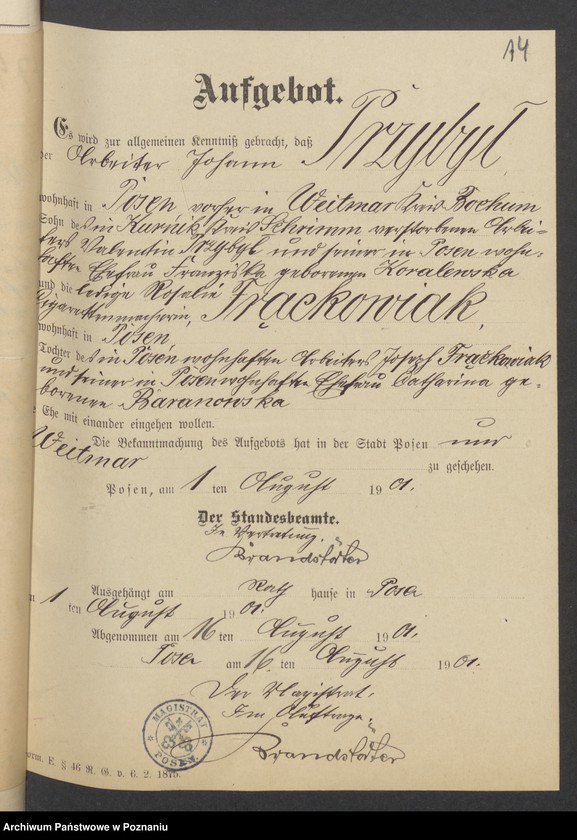 14
Aufgebot.
Es wird zur allgemeinen Kenntniß gebracht, daß
der Arbeiter Johann Przybyl
wohnhaft in Posen, vorher in Weitmar Kreis Bochum
Sohn des in Kurnik Kreis Schrimm verstorbenen Arbei-
ters Valentin Przybyl und seiner in Posen wohn-
haften Ehefrau Franziska geborenen Koralewska
und die ledige Rosalie Frąckowiak,
Cigarettenmacherin,
wohnhaft in Posen,
Tochter des in Posen wohnhaften Arbeiters Joseph Frąckowiak
und seiner in Posen wohnhaften Ehefrau Catharina ge-
borenen Baranowska
Ehe mit einander eingehen wollen.
Die Bekanntmachung des Aufgebots hat in der Stadt Posen und
Weitmar zu geschehen.
Posen, am 1 ten August 1901.
Der Standesbeamte.
In Vertretung.
Brandstäter
Ausgehängt am Rathhause in Posen
1 ten August 1901.
Abgenommen am 16 ten August 1901.
Posen am 16. ten August 1901.
Der Magistrat.
Im Auftrage:
Brandstäter
MAGISTRAT
POSEN.
orm. E. § 46 R. G. v. 6. 2. 1875.
Archiwum Państwowe w Poznaniu